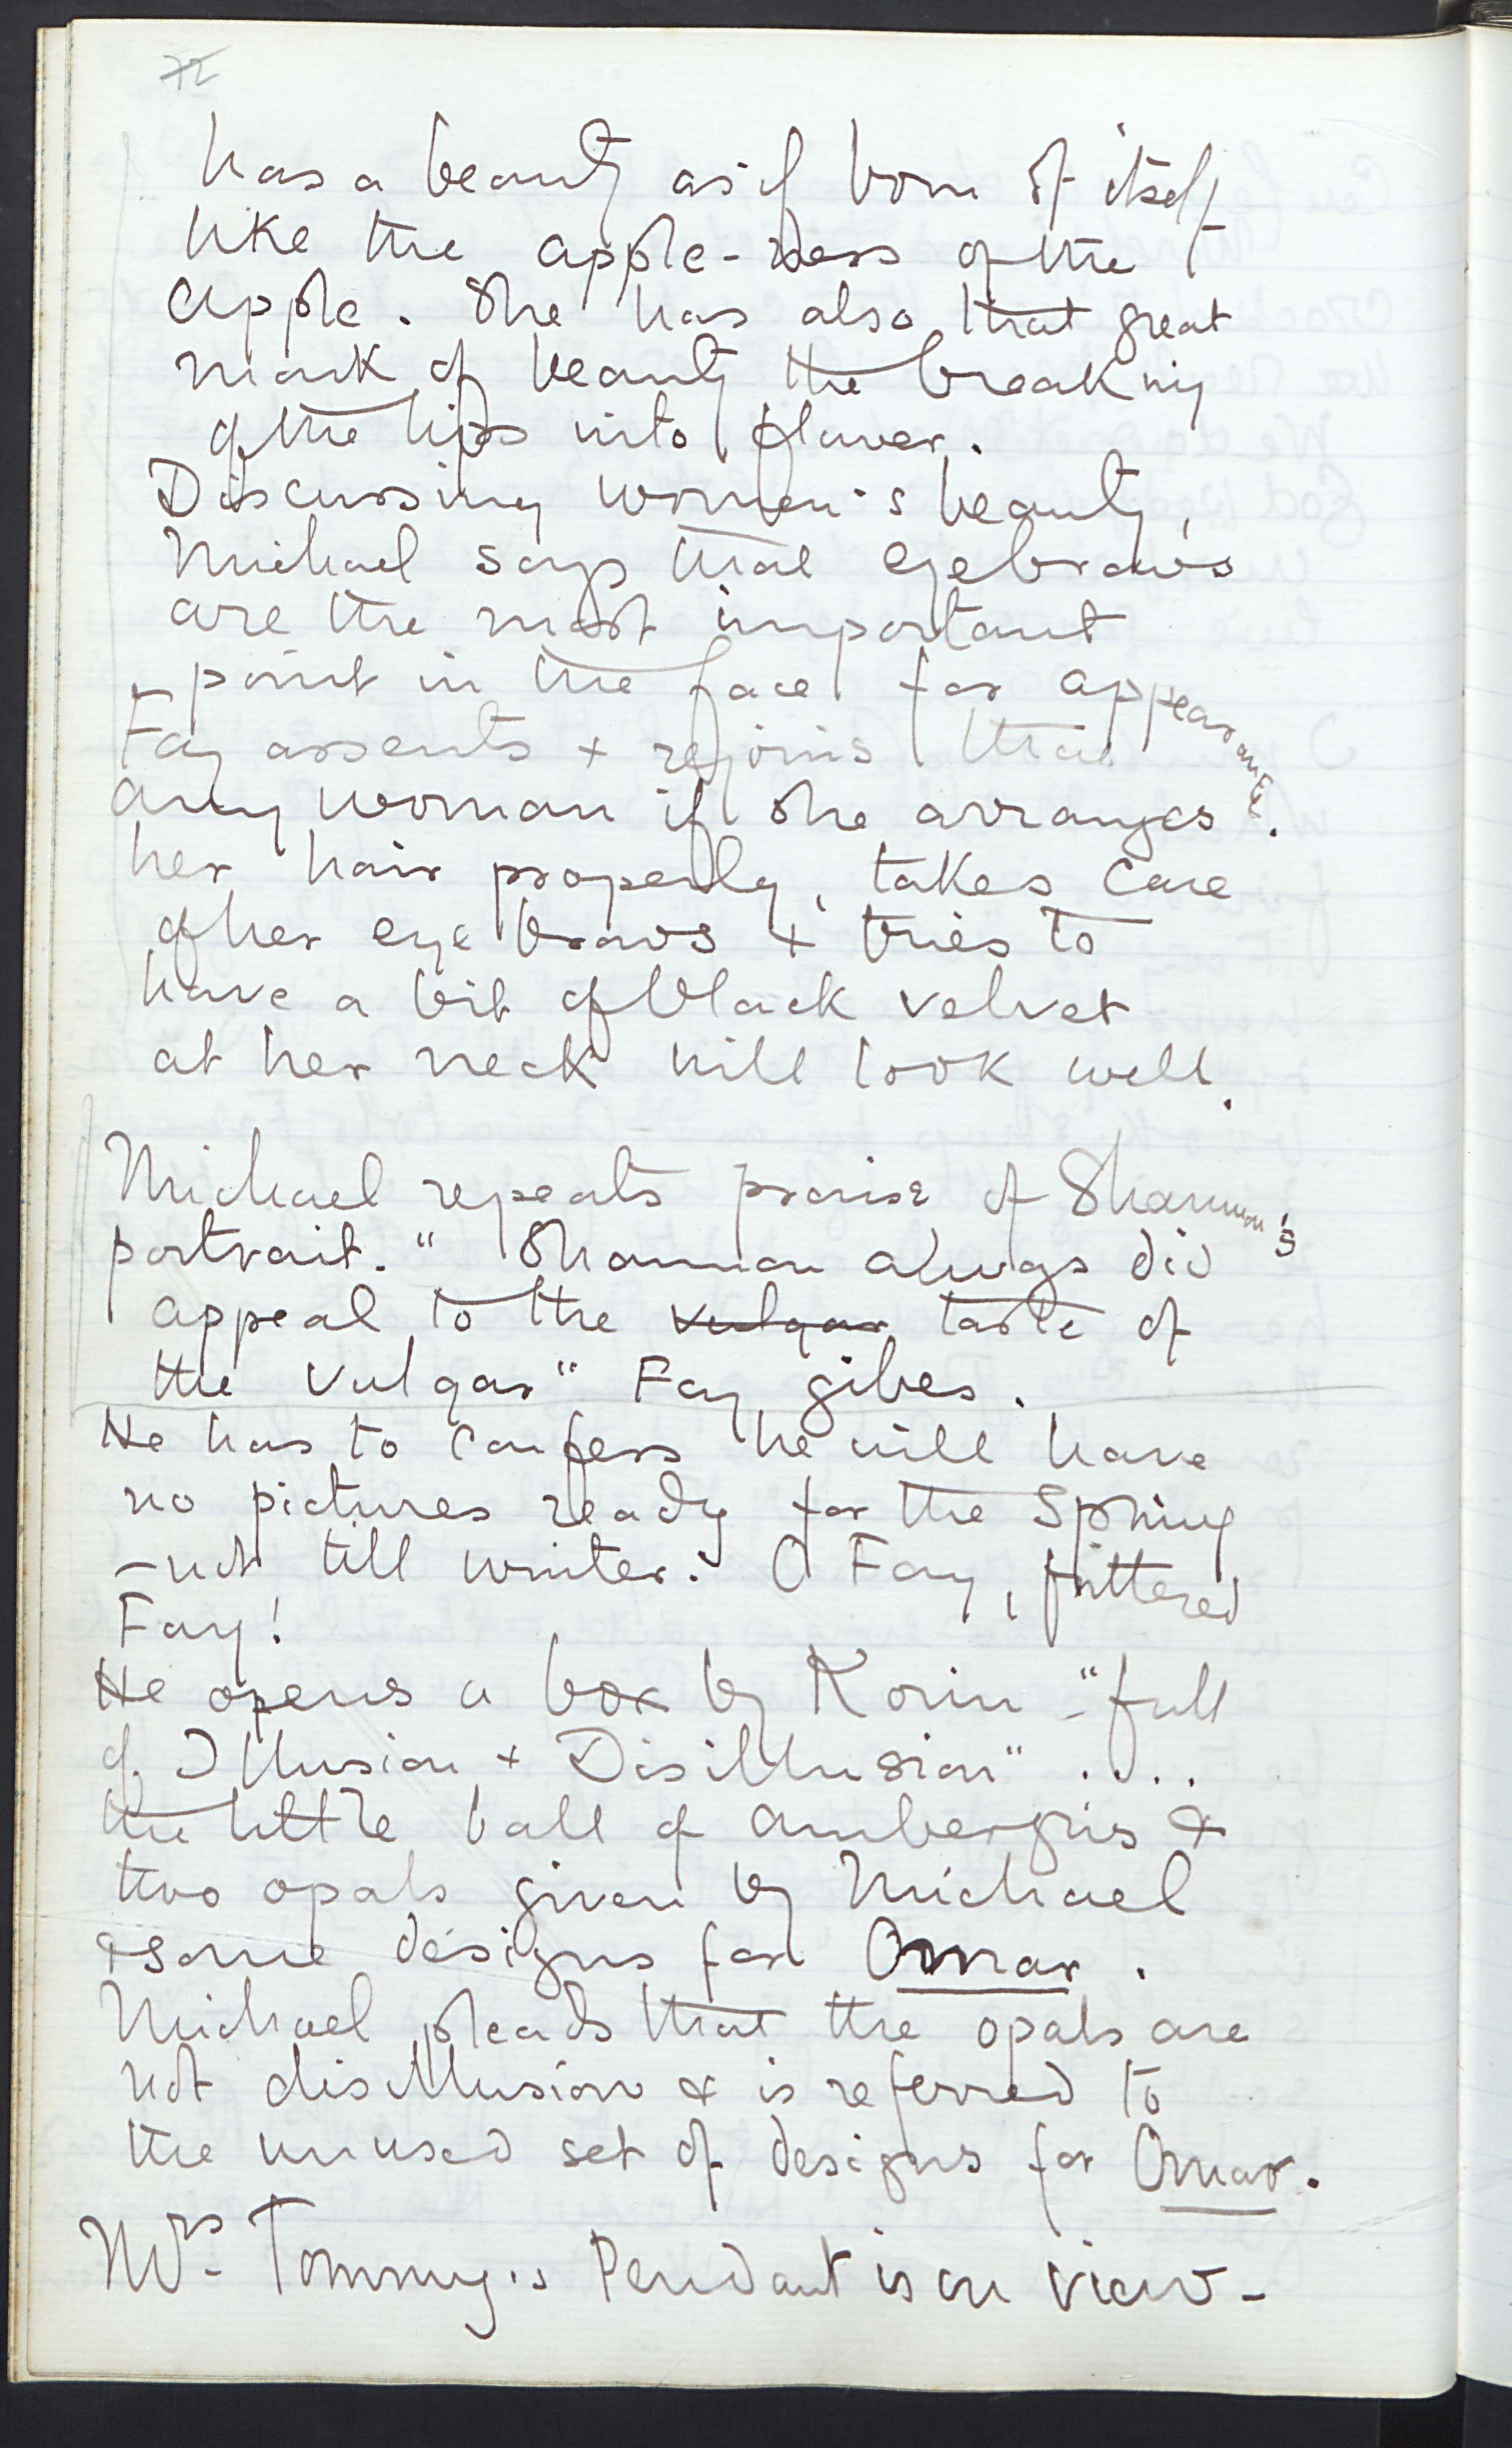 72
has a beauty as if born of itself
like the apple-ness of the
apple. She has also that great
mark of beauty the breaking
of the lips into flower.
Discussing women's beauty,
Michael says that eyebrows
are the most important
point in the face for appearance.
Fay assents + rejoins that
any woman if she arranges
her hair properly, takes care
of her eye brows + tries to
have a bit of black velvet
at her neck will look well.
Michael repeats praise of Shannon's
portrait. "Shannon always did
appeal to the vulgar taste of
the vulgar" Fay gibes.
He has to confess he will have
no pictures ready for the Spring
- not till winter. O Fay, frittered
Fay!
He opens a box by Korin - "full
of Illusion + Disillusion" ....
the little ball of ambergris &
two opals given by Michael
& some designs for Omar.
Michael pleads that the opals are
not disillusion & is referred to
the unused set of designs for Omar.
Mrs Tommy's Pendant is on view -